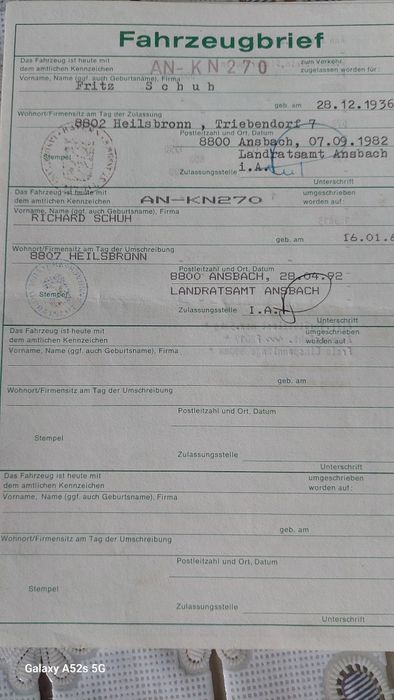 Fahrzeugbrief
Das Fahrzeug ist heute mit dem amtlichen Kennzeichen AN-KN270 zum Verkehr zugelassen worden für:
Vorname, Name (ggf. auch Geburtsname), Firma
Fritz Schuh
geb. am 28.12.1936
Wohnort/Firmensitz am Tag der Zulassung
8802 Heilsbronn , Triebendorf 7
Postleitzahl und Ort, Datum
8800 Ansbach, 07.09.1982
Landratsamt Ansbach
Stempel
Zulassungsstelle i.A.
Unterschrift
Das Fahrzeug ist heute mit dem amtlichen Kennzeichen AN-KN270 umgeschrieben worden auf:
Vorname, Name (ggf. auch Geburtsname), Firma
RICHARD SCHUH
geb. am 16.01.6
Wohnort/Firmensitz am Tag der Umschreibung
8807 HEILSBRONN
Postleitzahl und Ort, Datum
8800 ANSBACH, 28.04.92
LANDRATSAMT ANSBACH
Stempel
Zulassungsstelle I.A.
Unterschrift
Das Fahrzeug ist heute mit dem amtlichen Kennzeichen umgeschrieben worden auf:
Vorname, Name (ggf. auch Geburtsname), Firma
geb. am
Wohnort/Firmensitz am Tag der Umschreibung
Postleitzahl und Ort, Datum
Stempel
Zulassungsstelle
Unterschrift
Das Fahrzeug ist heute mit dem amtlichen Kennzeichen umgeschrieben worden auf:
Vorname, Name (ggf. auch Geburtsname), Firma
geb. am
Wohnort/Firmensitz am Tag der Umschreibung
Postleitzahl und Ort, Datum
Stempel
Zulassungsstelle
Unterschrift
Galaxy A52s 5G